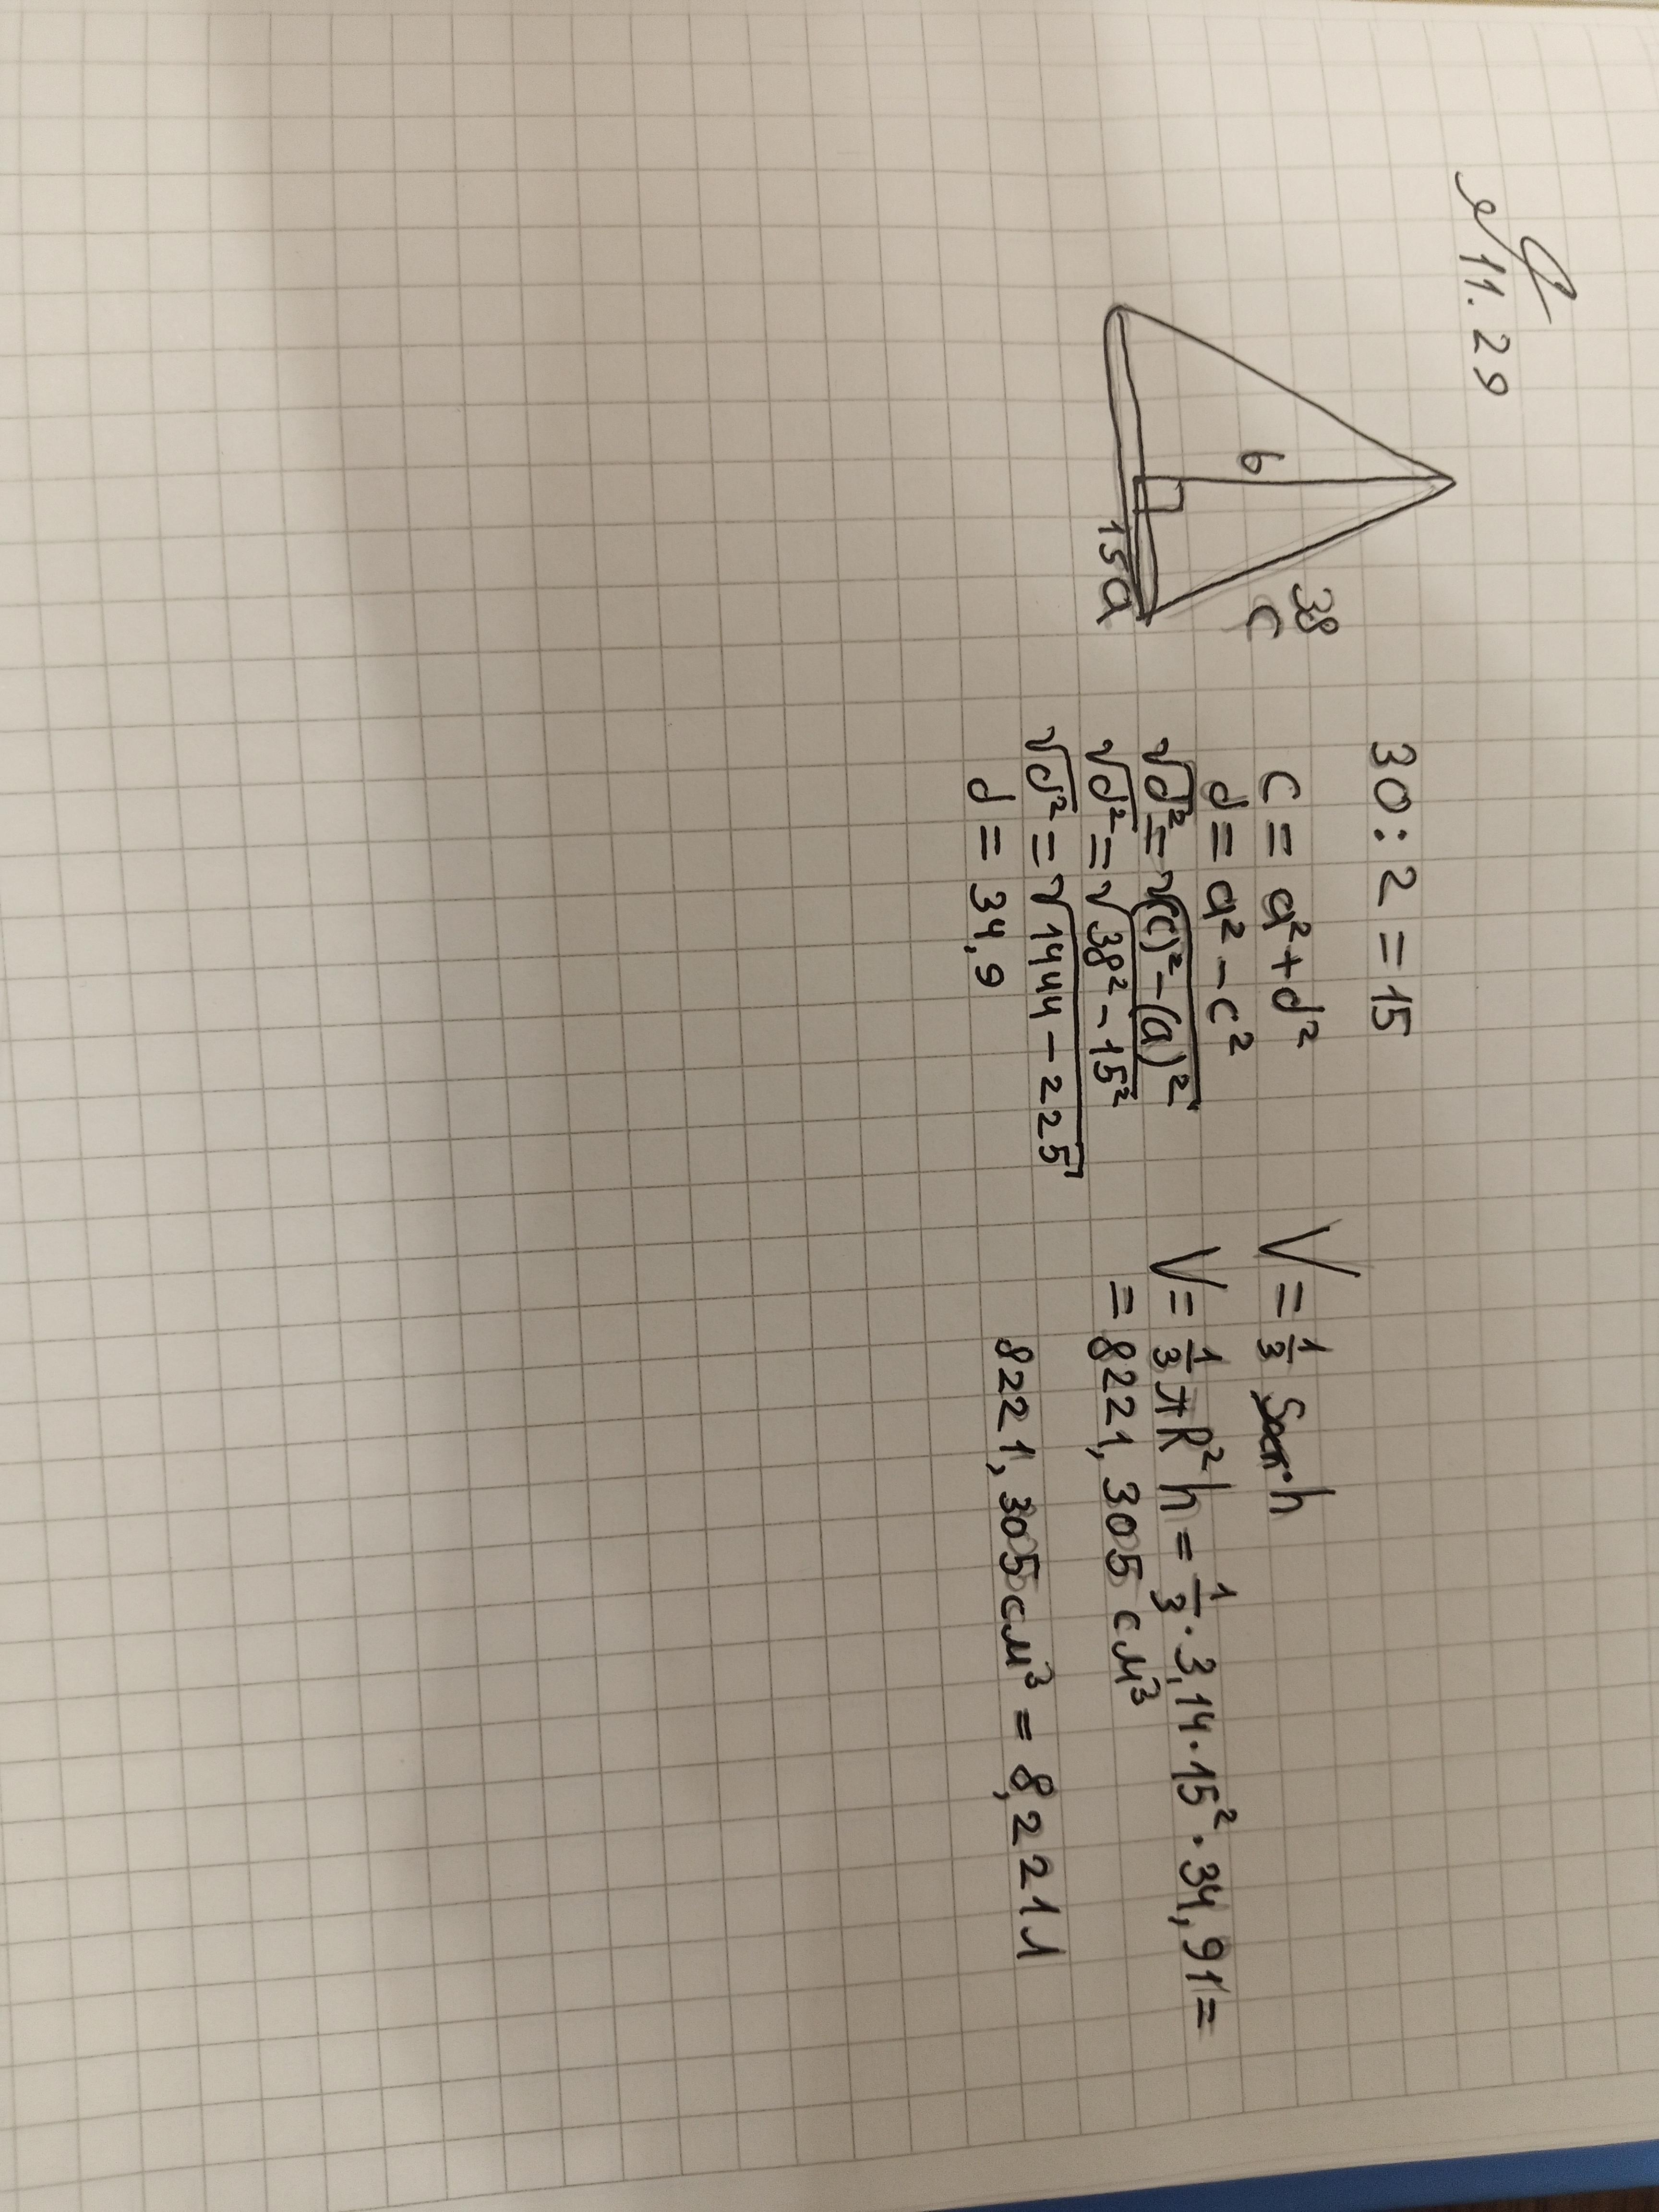 11.29
b
38
c
15 a
30:2=15
c = a²+d²
d = a² - c²
√d² = √(c)² - (a)²
√d² = √38² - 15²
√d² = √1444 - 225
d = 34,9
V = 1/3 Sосн · h
V = 1/3 πR²h = 1/3 · 3,14 · 15² · 34,91 =
= 8221,305 см³
8221,305 см³ = 8,221 л